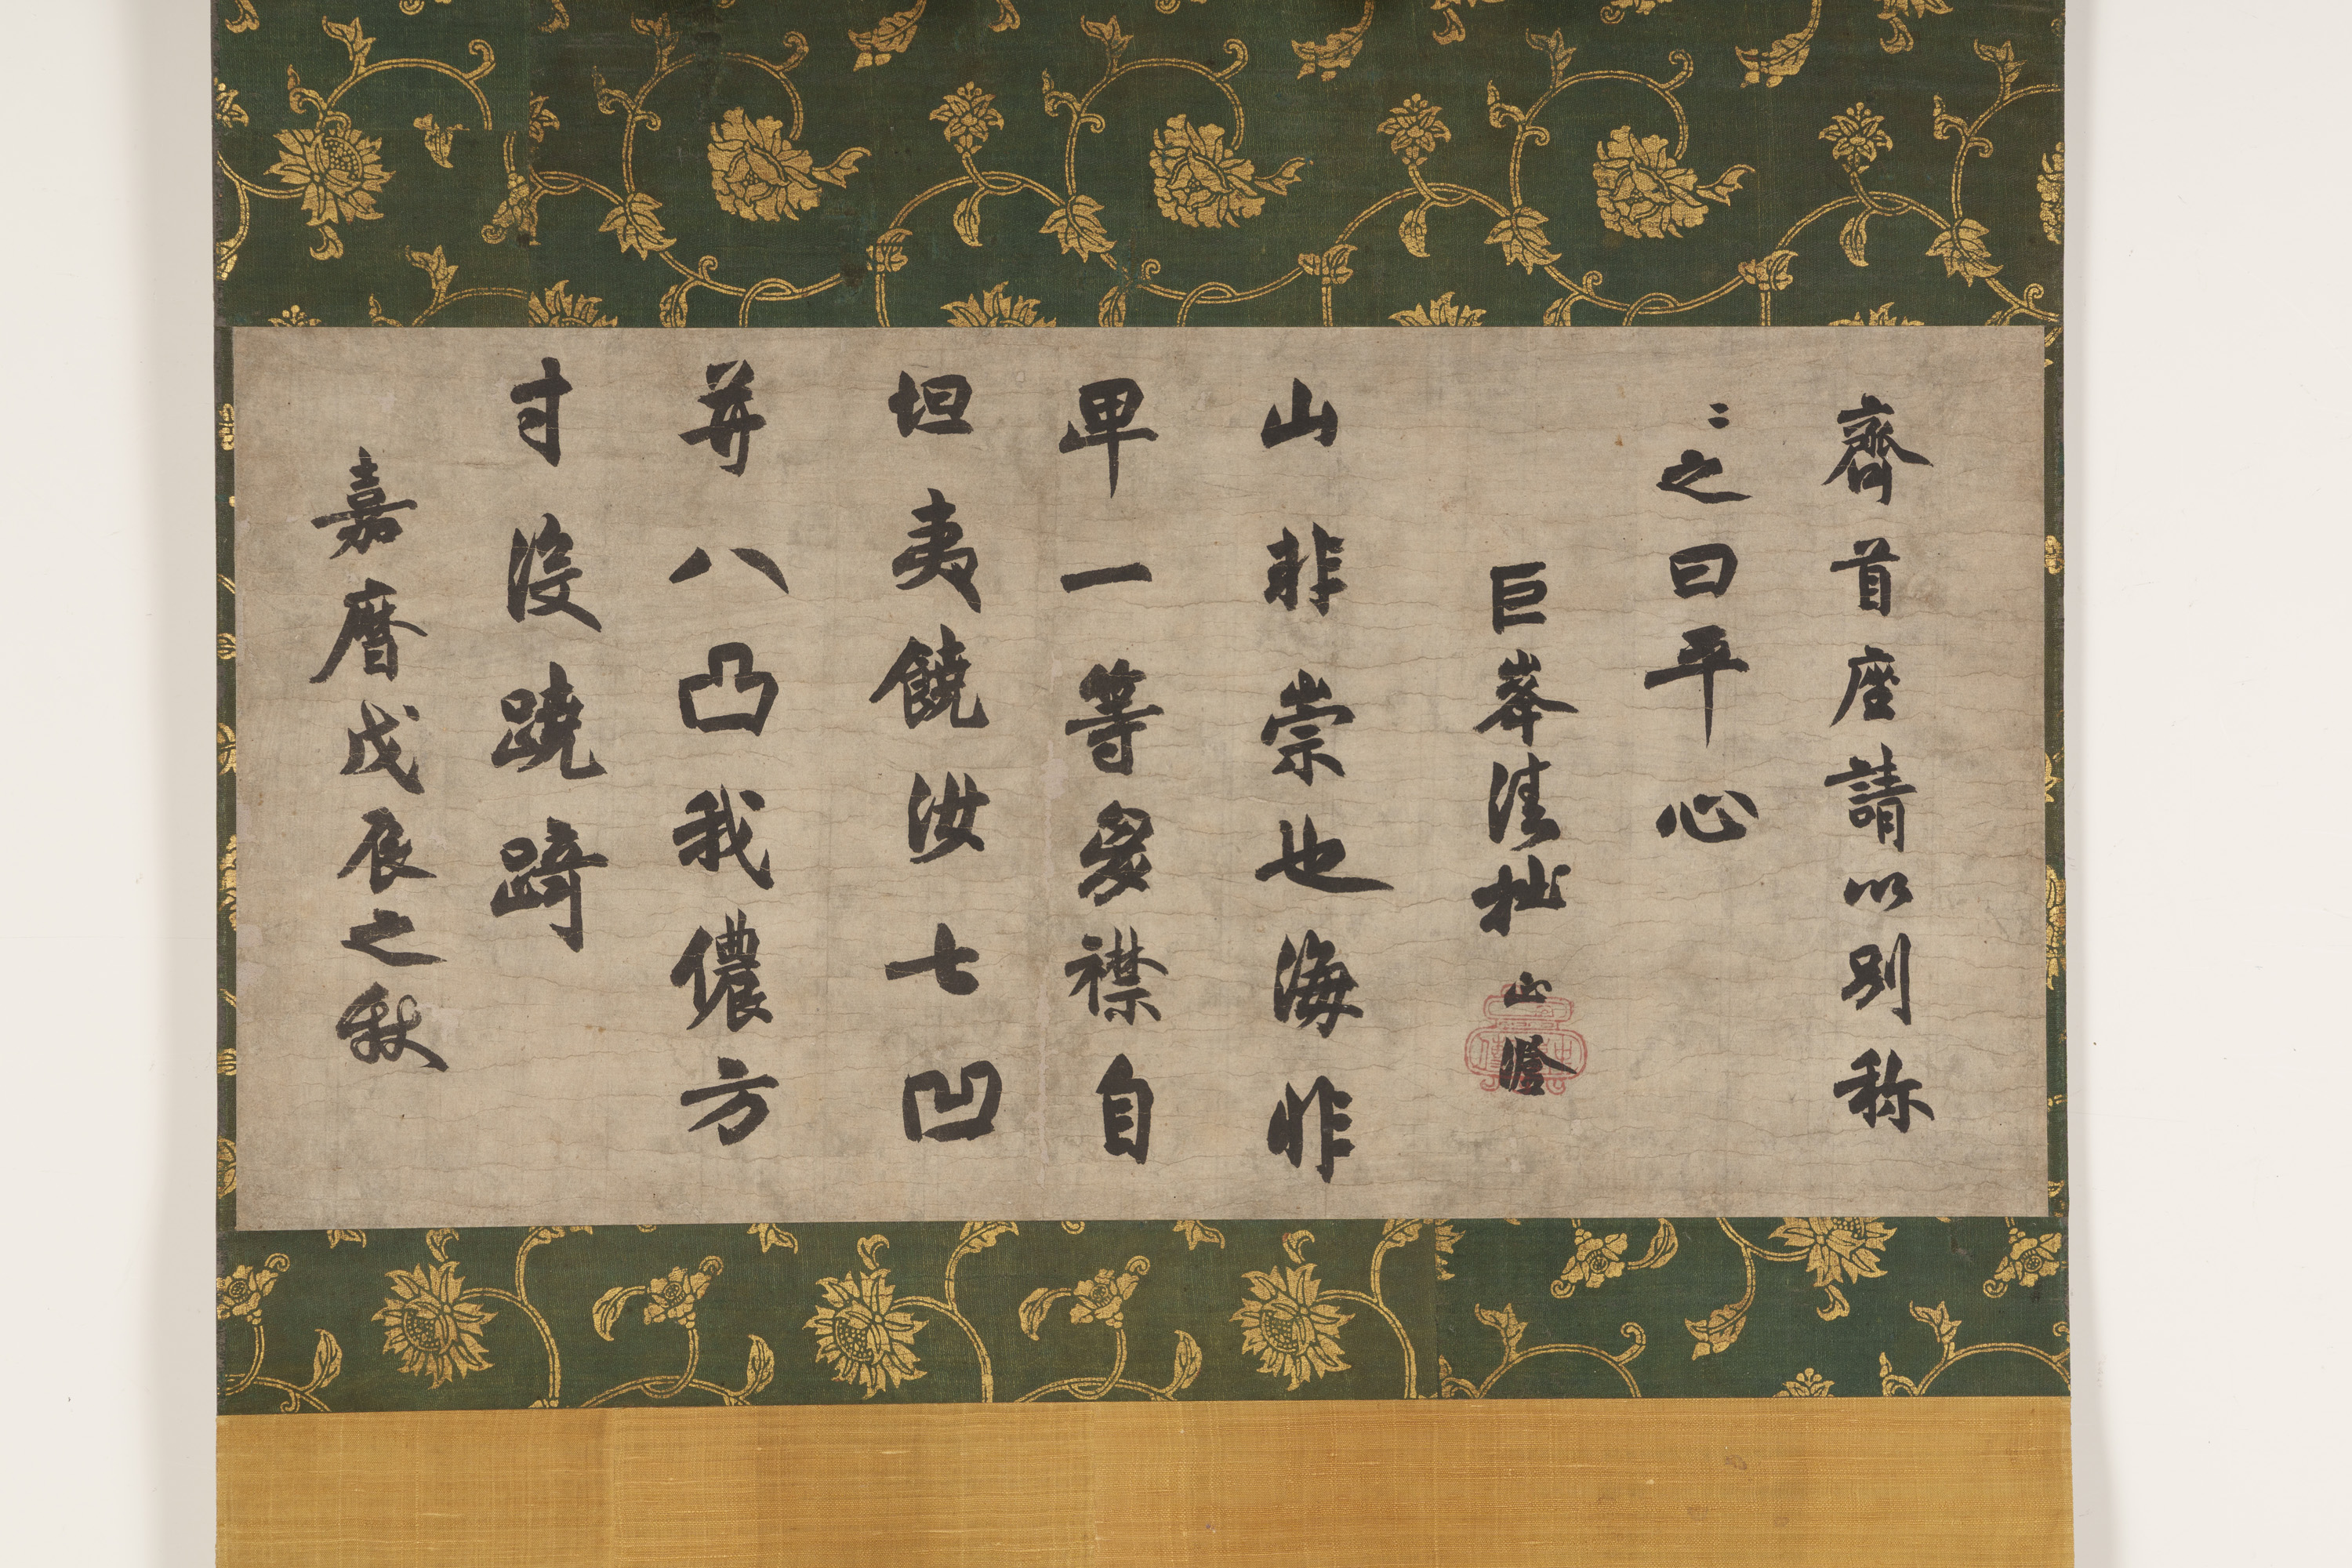 齊首座請以別称
〻之曰平心
巨峯清拙 正澄
山非崇也海非
卑一等胷襟自
坦夷饒汝七凹
并八凸我儂方
寸没蹺踦
嘉暦戊辰之秋